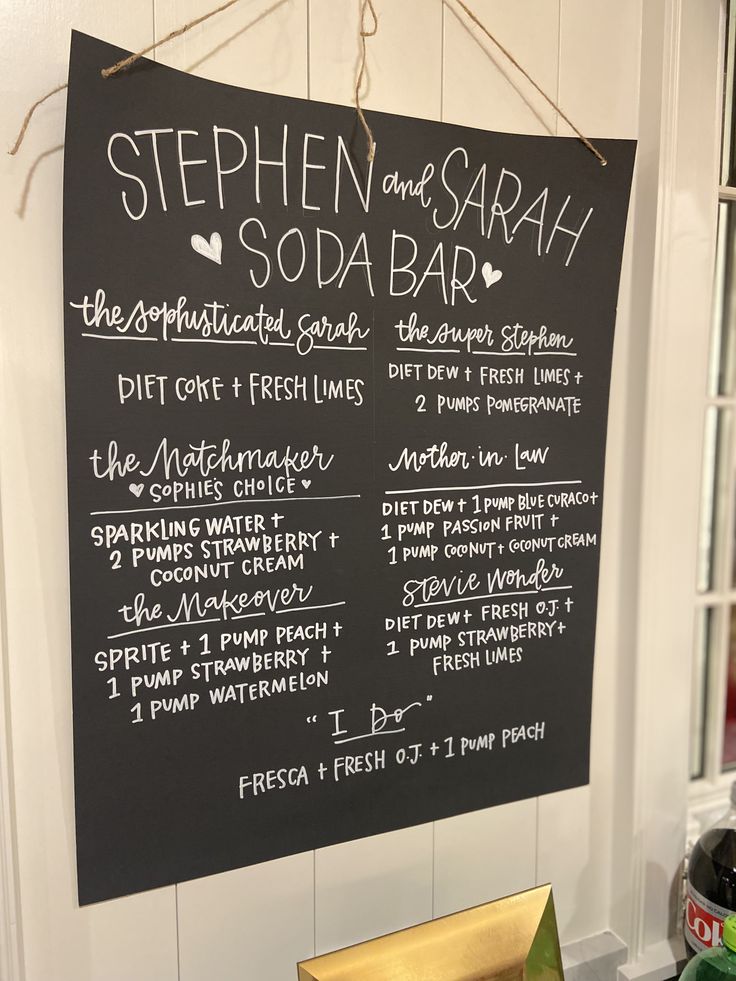 STEPHEN and SARAH
SODA BAR
the sophisticated Sarah
DIET COKE + FRESH LIMES
the super Stephen
DIET DEW + FRESH LIMES +
2 PUMPS POMEGRANATE
the Matchmaker
SOPHIE'S CHOICE
SPARKLING WATER +
2 PUMPS STRAWBERRY +
COCONUT CREAM
Mother-in-Law
DIET DEW + 1 PUMP BLUE CURACO +
1 PUMP PASSION FRUIT +
1 PUMP COCONUT + COCONUT CREAM
the Makeover
SPRITE + 1 PUMP PEACH +
1 PUMP STRAWBERRY +
1 PUMP WATERMELON
Stevie Wonder
DIET DEW + FRESH O.J. +
1 PUMP STRAWBERRY +
FRESH LIMES
"I Do"
FRESCA + FRESH O.J. + 1 PUMP PEACH